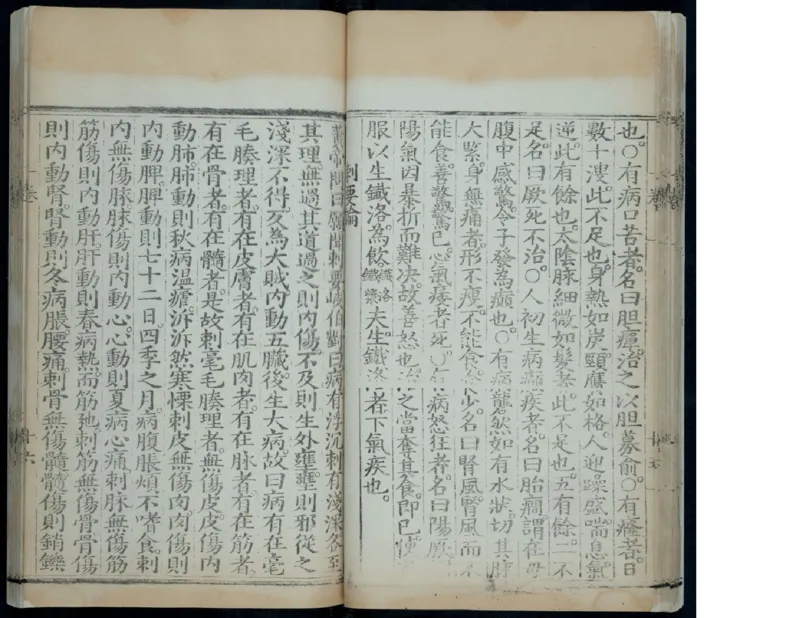 也。○有病口苦者。名曰胆癉。治之以胆募俞。○有癃者。日
數十溲。此不足也。身熱如炭。頸膺如格。人迎躁盛。喘息氣
逆。此有餘也。太陰脉細微如髮者。此不足也。五有餘。二不
足。名曰厥。死不治。○人初生病癲疾者。名曰胎癇。謂在母
腹中感驚。令子發為癲也。○有病龐然如有水狀。切其脉
大緊。身無痛者。形不瘦。不能食。食少。名曰腎風。腎風而不
能食。善驚。驚已。心氣痿者死。○有病怒狂者。名曰陽厥
陽氣因暴折而難决。故善怒也。治之當奪其食。即已。使
服以生鐵洛為飲鐵洛鐵漿夫生鐵洛者。下氣疾也。
刺要論
黃帝問曰。願聞刺要。岐伯對曰。病有浮沉。刺有淺深。各至
其理。無過其道。過之則内傷。不及則生外壅。壅則邪從之
淺深不得。反為大賊。内動五臟。後生大病。故曰病有在毫
毛腠理者。有在皮膚者。有在肌肉者。有在脉者。有在筋者。
有在骨者。有在髓者。是故刺毫毛腠理者。無傷皮。皮傷内
動肺。肺動則秋病溫瘧。泝泝然寒慄。刺皮無傷肉。肉傷則
内動脾。脾動則七十二日。四季之月。病腹脹煩不嗜食。刺
肉無傷脉。脉傷則内動心。心動則夏病心痛。刺脉無傷筋
筋傷則内動肝。肝動則春病熱而筋弛。刺筋無傷骨。骨傷
則内動腎。腎動則冬病脹腰痛。刺骨無傷髓。髓傷則銷鑠
十六